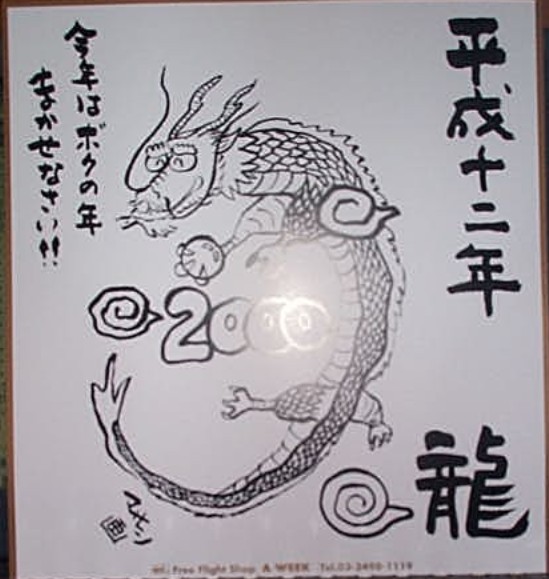 平成十二年
龍
今年はボクの年
まかせなさい!!
2000
画
Free Flight Shop A WEEK Tel.03-3498-1119